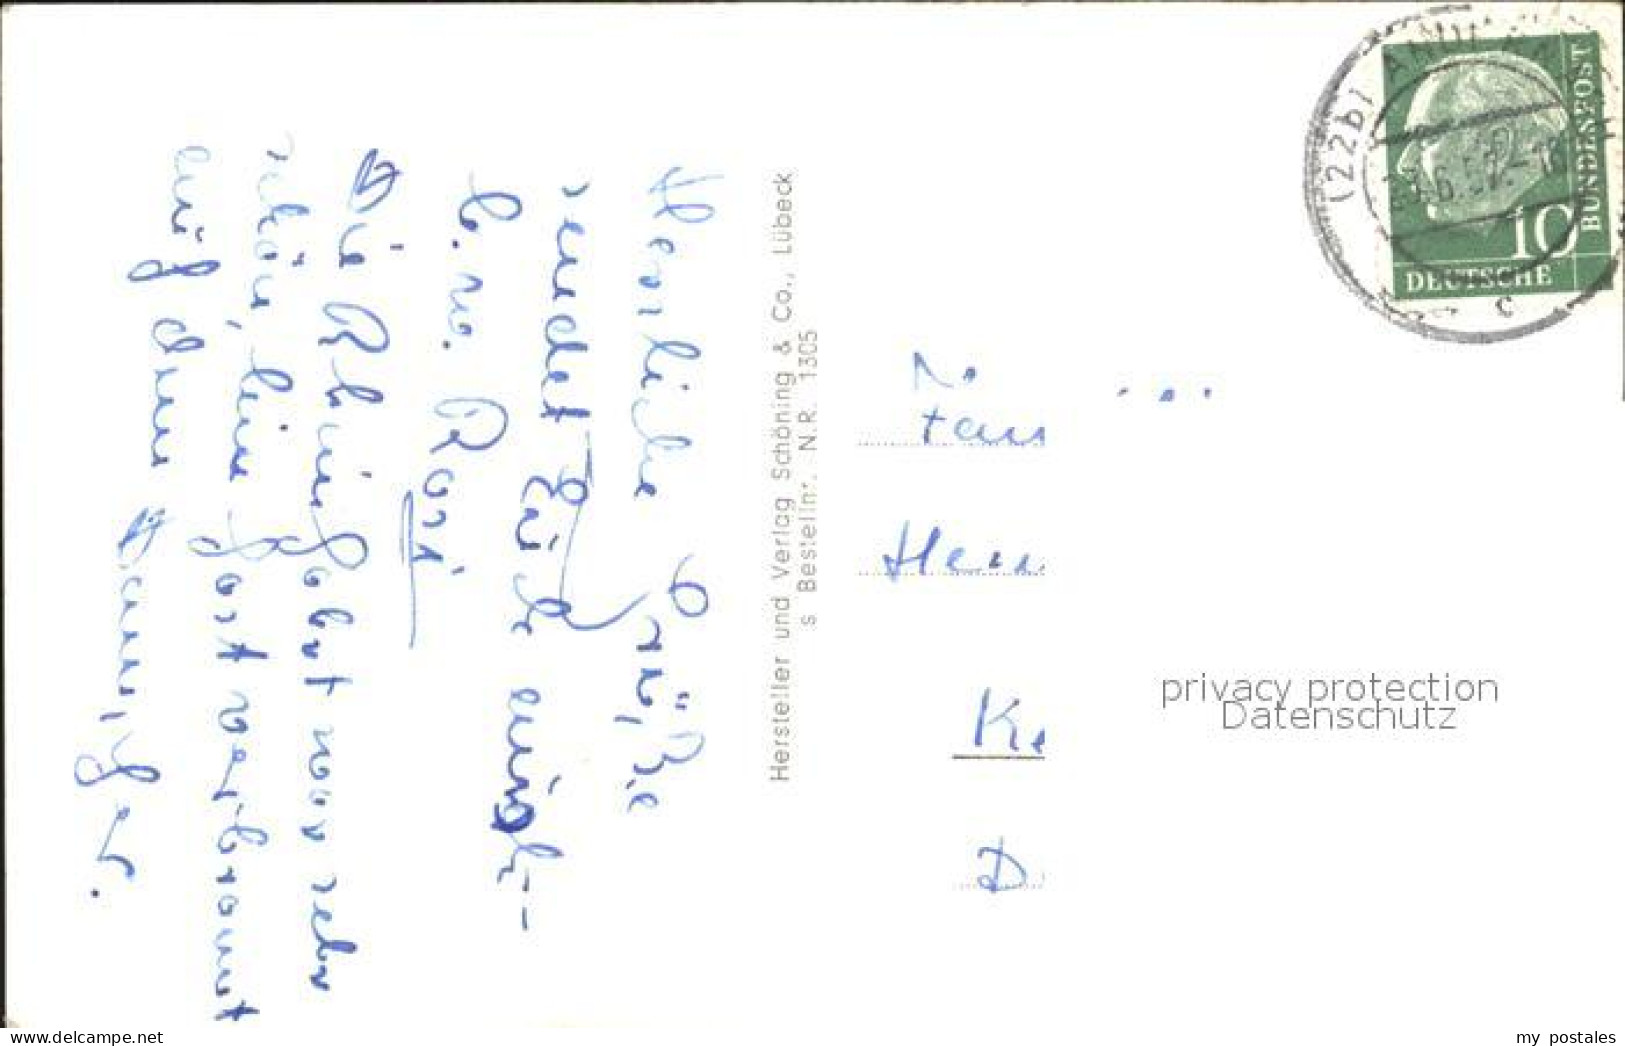 Herzliche Grüße
sendet Euch
b. no. Rosi
Die Rheinfahrt war sehr
schön, bin fast verbrannt
auf dem Dampfer.
Hersteller und Verlag Schöning & Co., Lübeck
s Bestellnr. N.R. 1305
(22b) AND
.6.57.-18
c
10
DEUTSCHE
BUNDESPOST
Fam
Herrn
K
D
privacy protection
Datenschutz
www.delcampe.net
my_postales